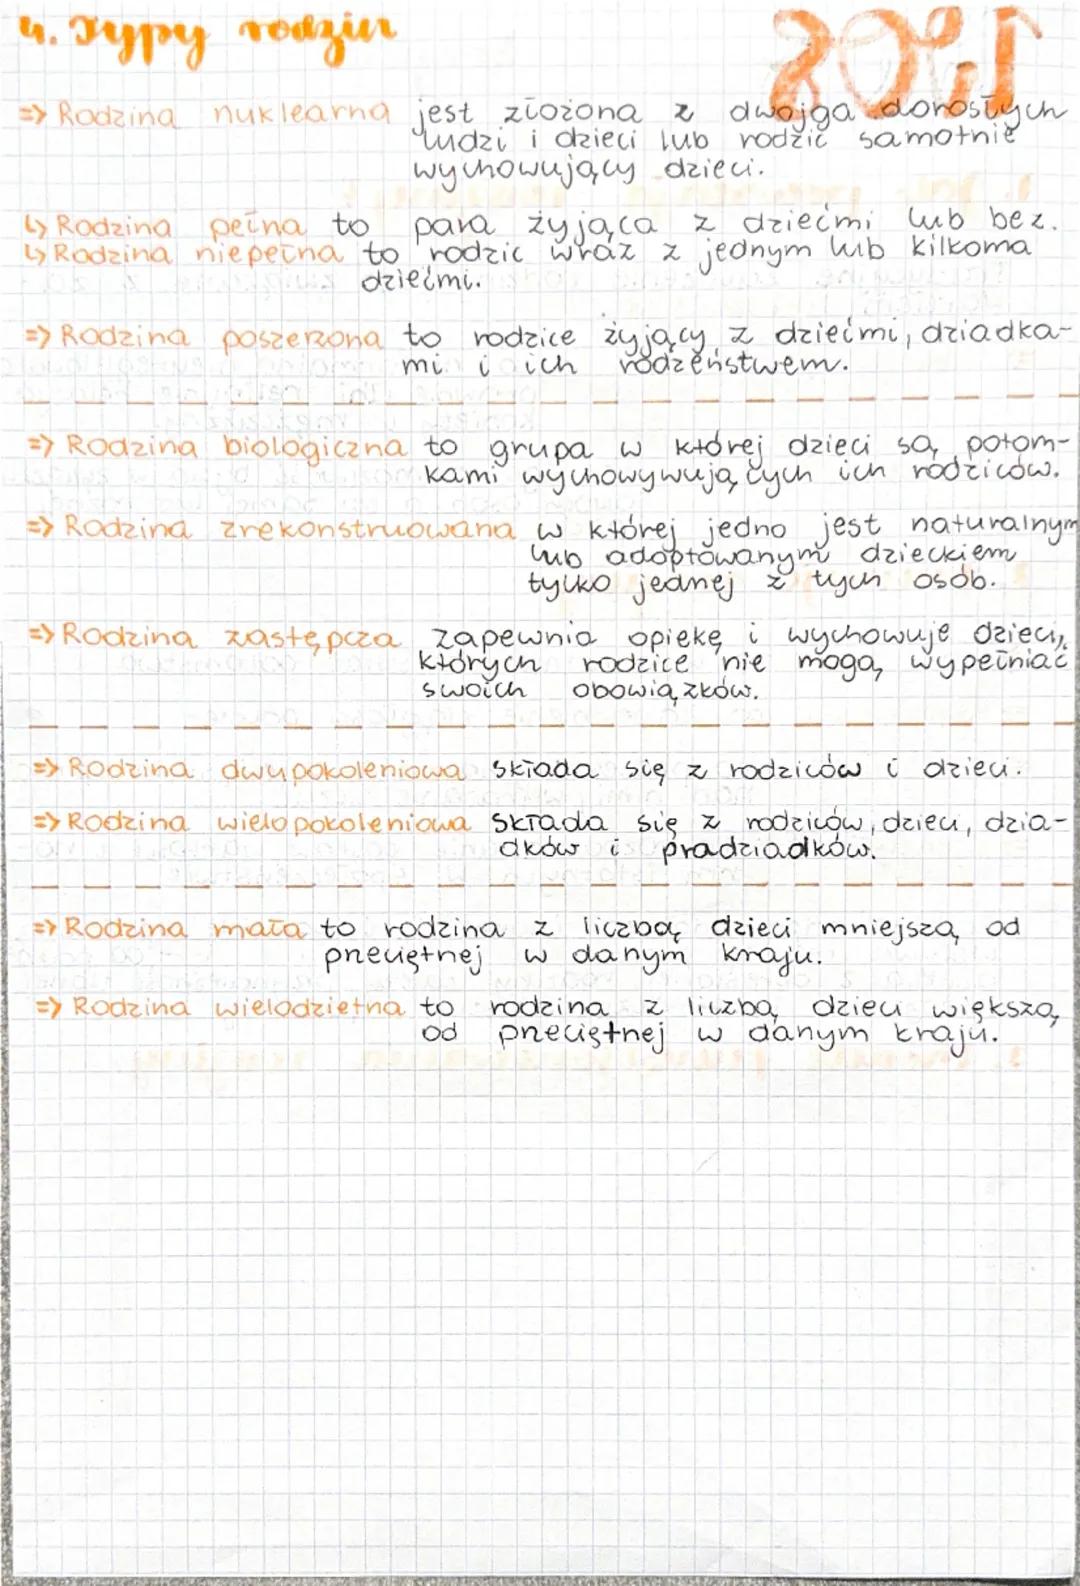 4. Typy rodzin
=> Rodzina nuklearna jest złożona z dwojga dorosłych
ludzi i dzieci lub rodzic samotnie
wychowujący dzieci.
↳ Rodzina pełna to para żyjąca z dziećmi lub bez.
↳ Rodzina niepełna to rodzic wraz z jednym lub kilkoma
dziećmi.
=> Rodzina poszerzona to rodzice żyjący z dziećmi, dziadka-
mi i ich rodzeństwem.
=> Rodzina biologiczna to grupa w której dzieci są potom-
kami wychowywujących ich rodziców.
=> Rodzina zrekonstruowana w której jedno jest naturalnym
lub adoptowanym dzieckiem
tylko jednej z tych osób.
=> Rodzina zastępcza zapewnia opiekę i wychowuje dzieci,
których rodzice nie mogą wypełniać
swoich obowiązków.
=> Rodzina dwupokoleniowa składa się z rodziców i dzieci.
=> Rodzina wielopokoleniowa składa się z rodziców, dzieci, dzia-
dków i pradziadków.
=> Rodzina mała to rodzina z liczbą dzieci mniejszą od
przeciętnej w danym kraju.
=> Rodzina wielodzietna to rodzina z liczbą dzieci większą
od przeciętnej w danym kraju.